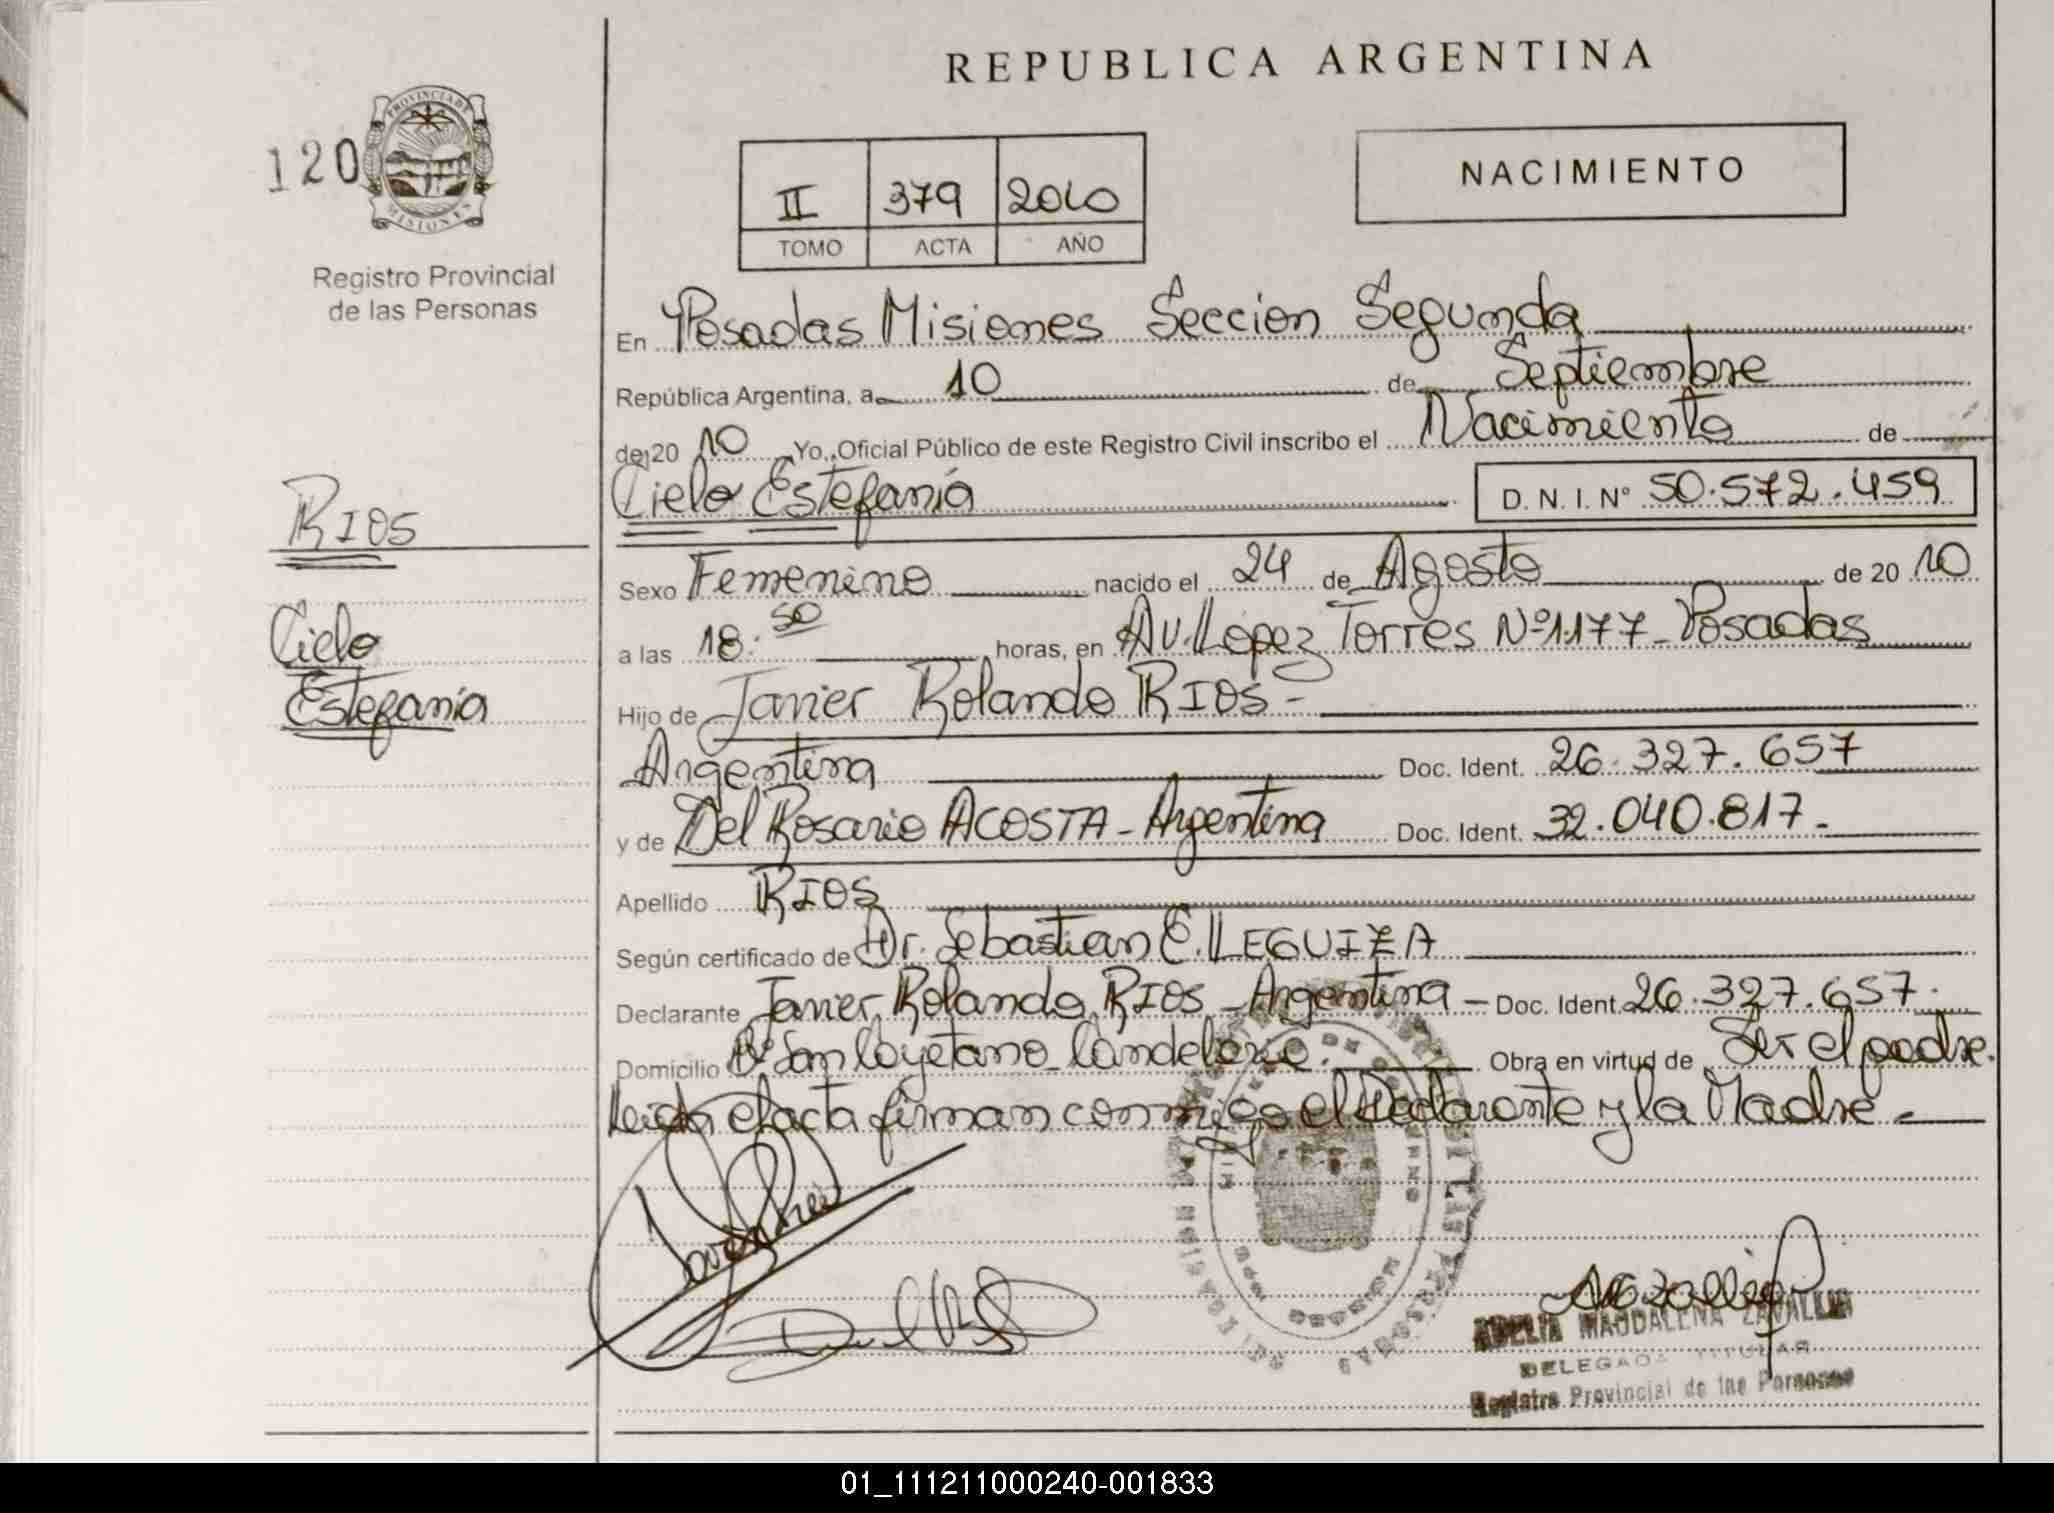 REPUBLICA ARGENTINA
120
PROVINCIA DE
MISIONES
Registro Provincial
de las Personas
II 379 2010
TOMO ACTA AÑO
NACIMIENTO
En Posadas Misiones Seccion Segunda
República Argentina, a 10 de Septiembre
de 20 10 Yo, Oficial Público de este Registro Civil inscribo el Nacimiento de
Cielo Estefanía D. N. I. Nº 50.572.459
RIOS
Cielo
Estefanía
Sexo Femenino nacido el 24 de Agosto de 20 10
a las 18:50 horas, en Av. López Torres Nº 1177 - Posadas
Hijo de Javier Rolando RIOS -
Argentina Doc. Ident. 26.327.657
y de Del Rosario ACOSTA - Argentina Doc. Ident. 32.040.817.-
Apellido RIOS
Según certificado de Dr. Sebastian E. LEGUIZA
Declarante Javier Rolando RIOS - Argentina - Doc. Ident. 26.327.657.
Domicilio Bº San Cayetano Candelaria. Obra en virtud de Ser el padre.
Leida el acta firman conmigo el Declarante y la Madre -
ADELIA MAGDALENA ZAVALLIA
DELEGADA TITULAR
Registro Provincial de las Personas
01_111211000240-001833